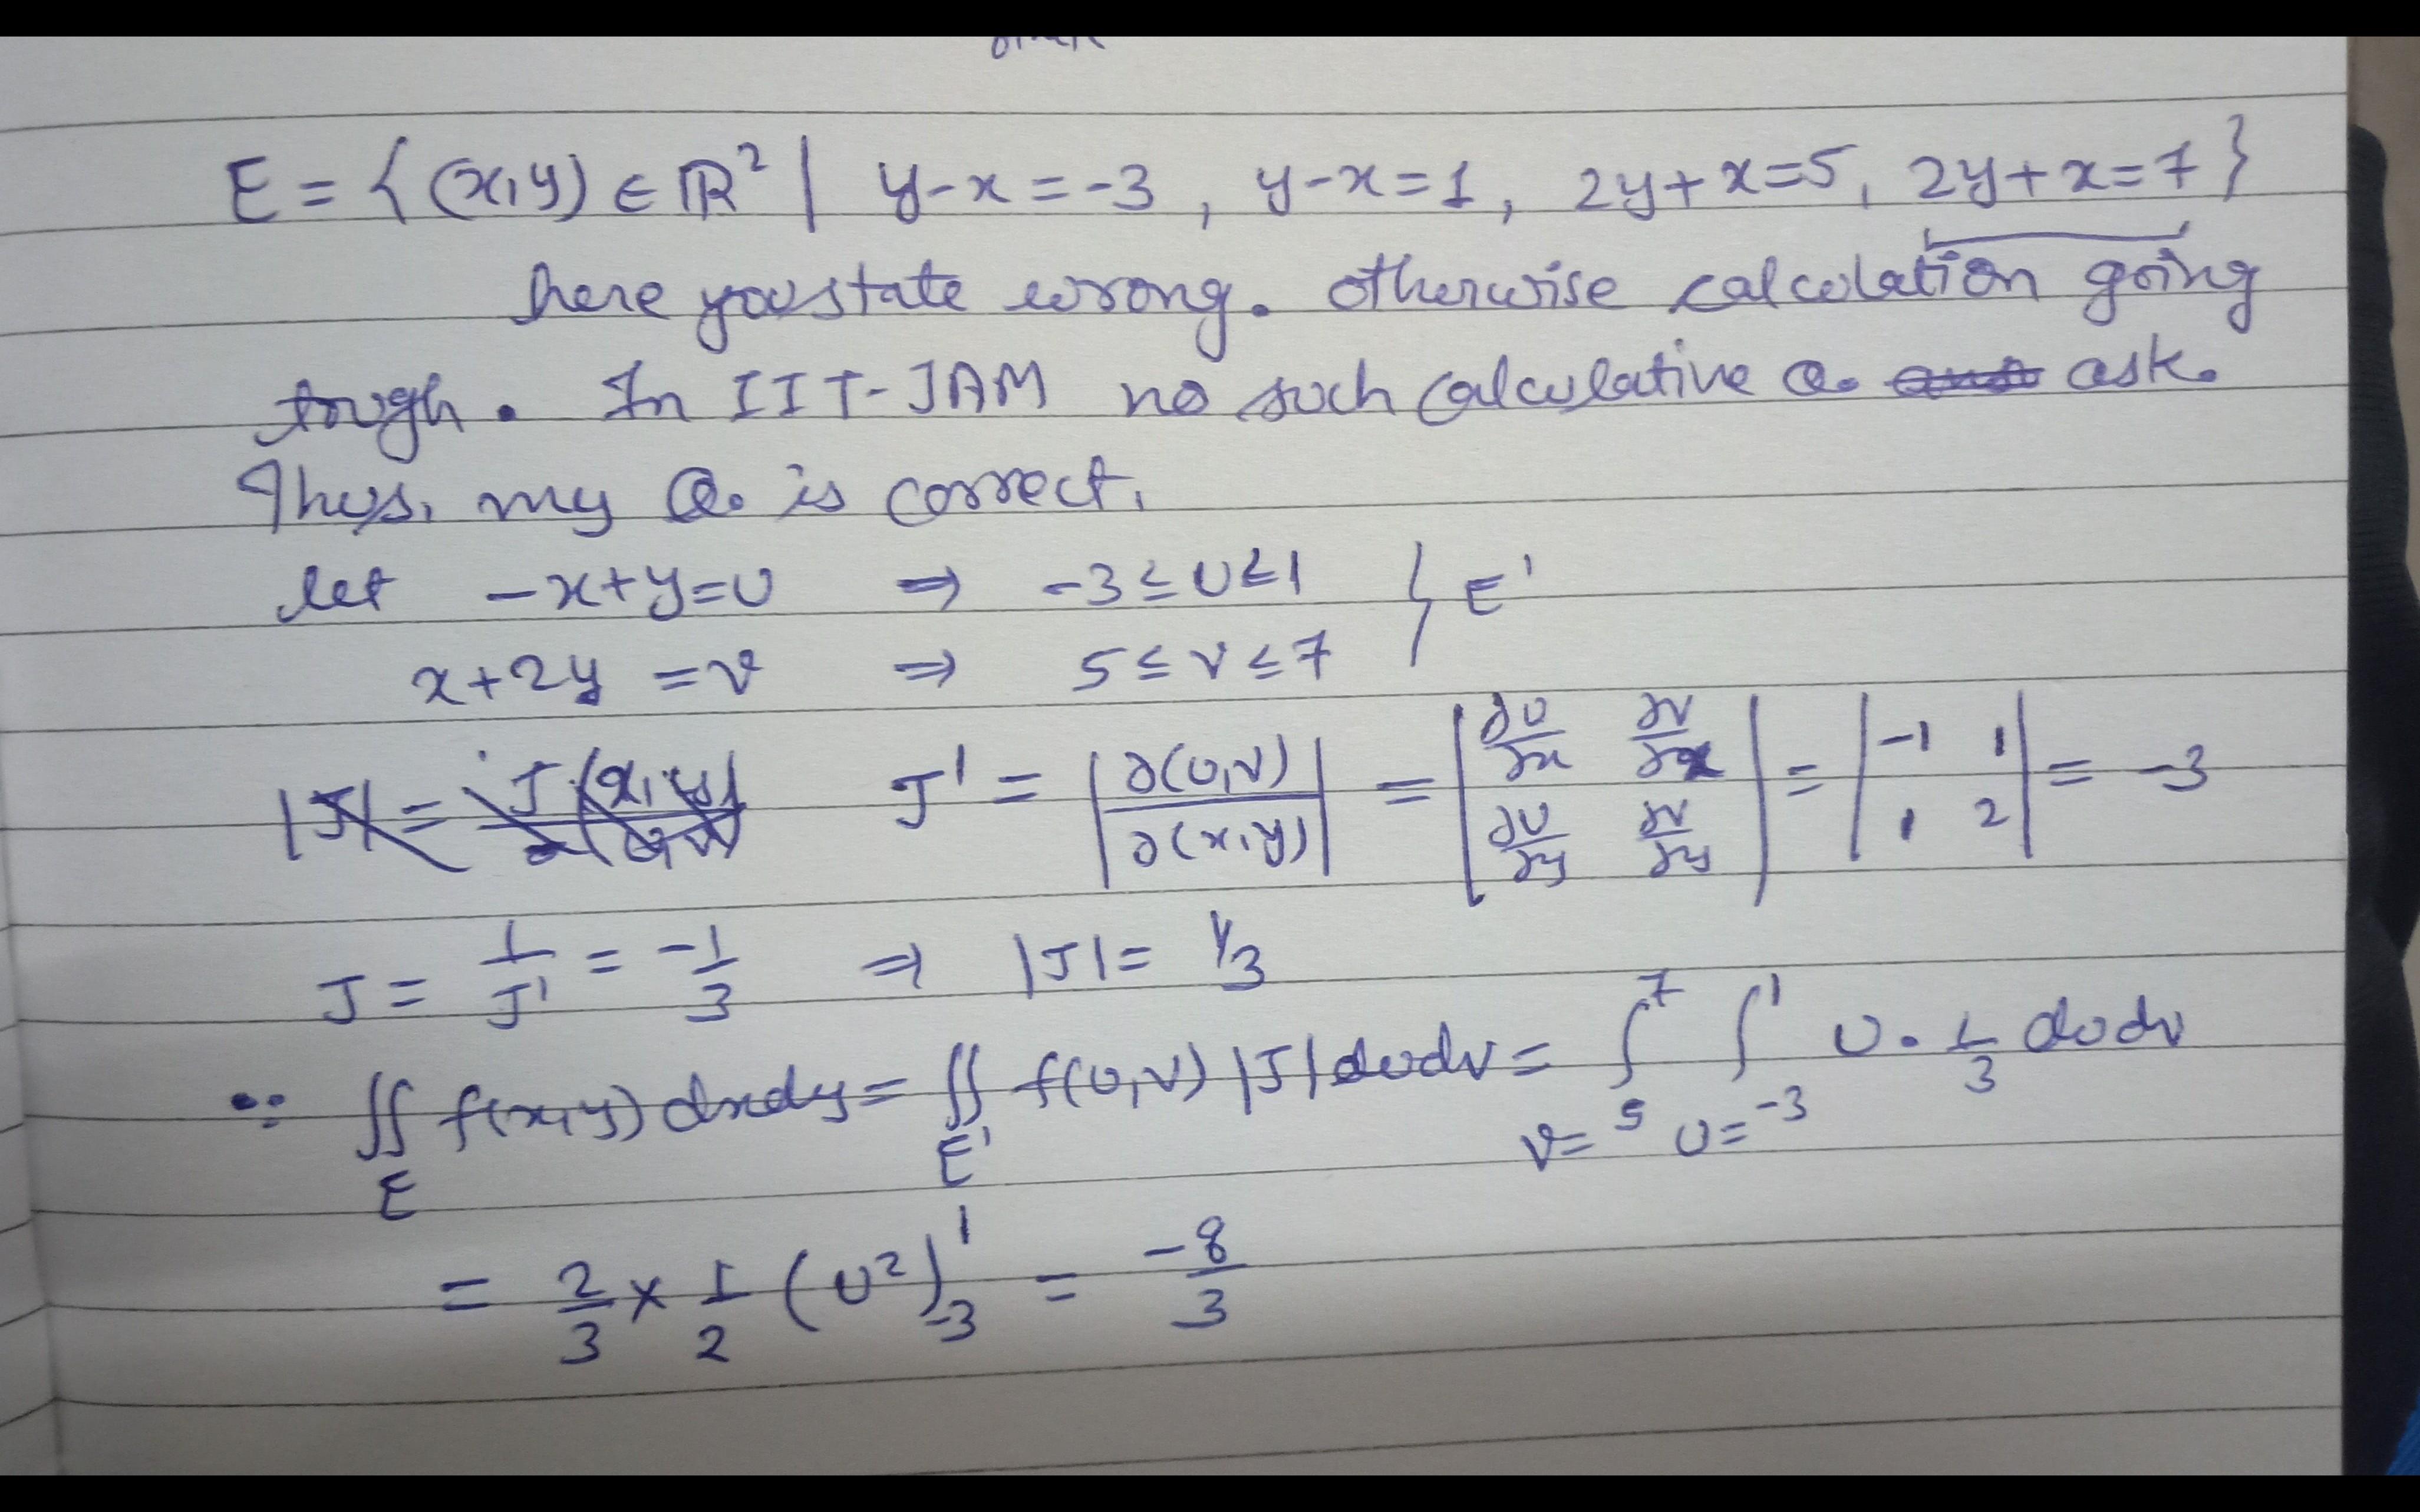 E = { (x,y) ∈ ℝ² | y-x = -3 , y-x=1 , 2y+x=5, 2y+x=7 }
here you state wrong. otherwise calculation going
tough. In IIT-JAM no such calculative Q. ask.
Thus, my Q. is correct.
let -x+y=u ⇒ -3≤u≤1 } E'
x+2y =v ⇒ 5≤v≤7
J' = |∂(u,v)/∂(x,y)| = |∂u/∂x ∂v/∂x; ∂u/∂y ∂v/∂y| = |-1 1; 1 2| = -3
J = 1/J' = -1/3 ⇒ |J| = 1/3
∵ ∬_E f(x,y) dxdy = ∬_E' f(u,v) |J| dudv = ∫_{v=5}^{7} ∫_{u=-3}^{1} u · 1/3 dudv
= 2/3 × 1/2 (u²)_{-3}^{1} = -8/3